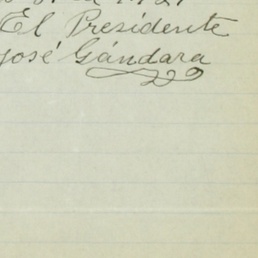 El Presidente
José Gándara